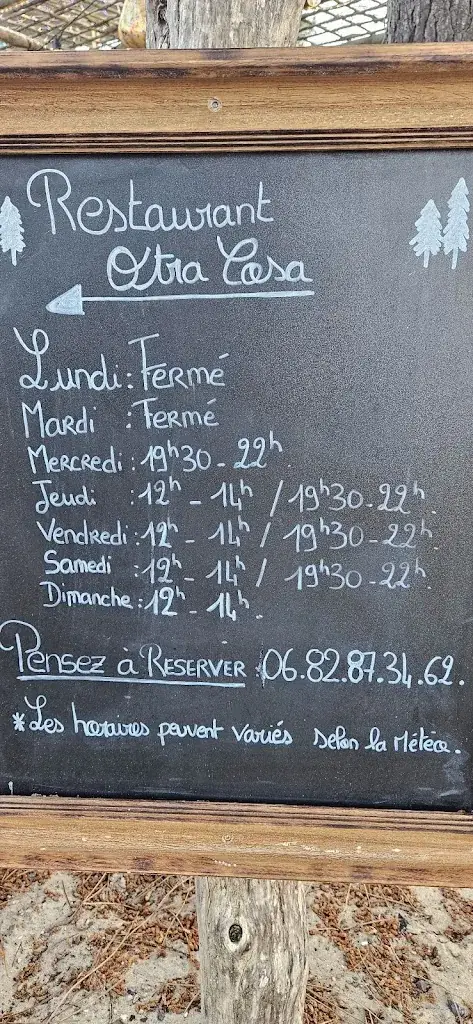 Restaurant
Otra Casa
Lundi : Fermé
Mardi : Fermé
Mercredi : 19h30 - 22h.
Jeudi : 12h - 14h / 19h30 - 22h.
Vendredi : 12h - 14h / 19h30 - 22h.
Samedi : 12h - 14h / 19h30 - 22h.
Dimanche : 12h - 14h.
Pensez à RESERVER : 06.82.87.34.62.
* Les horaires peuvent variés selon la Météo.